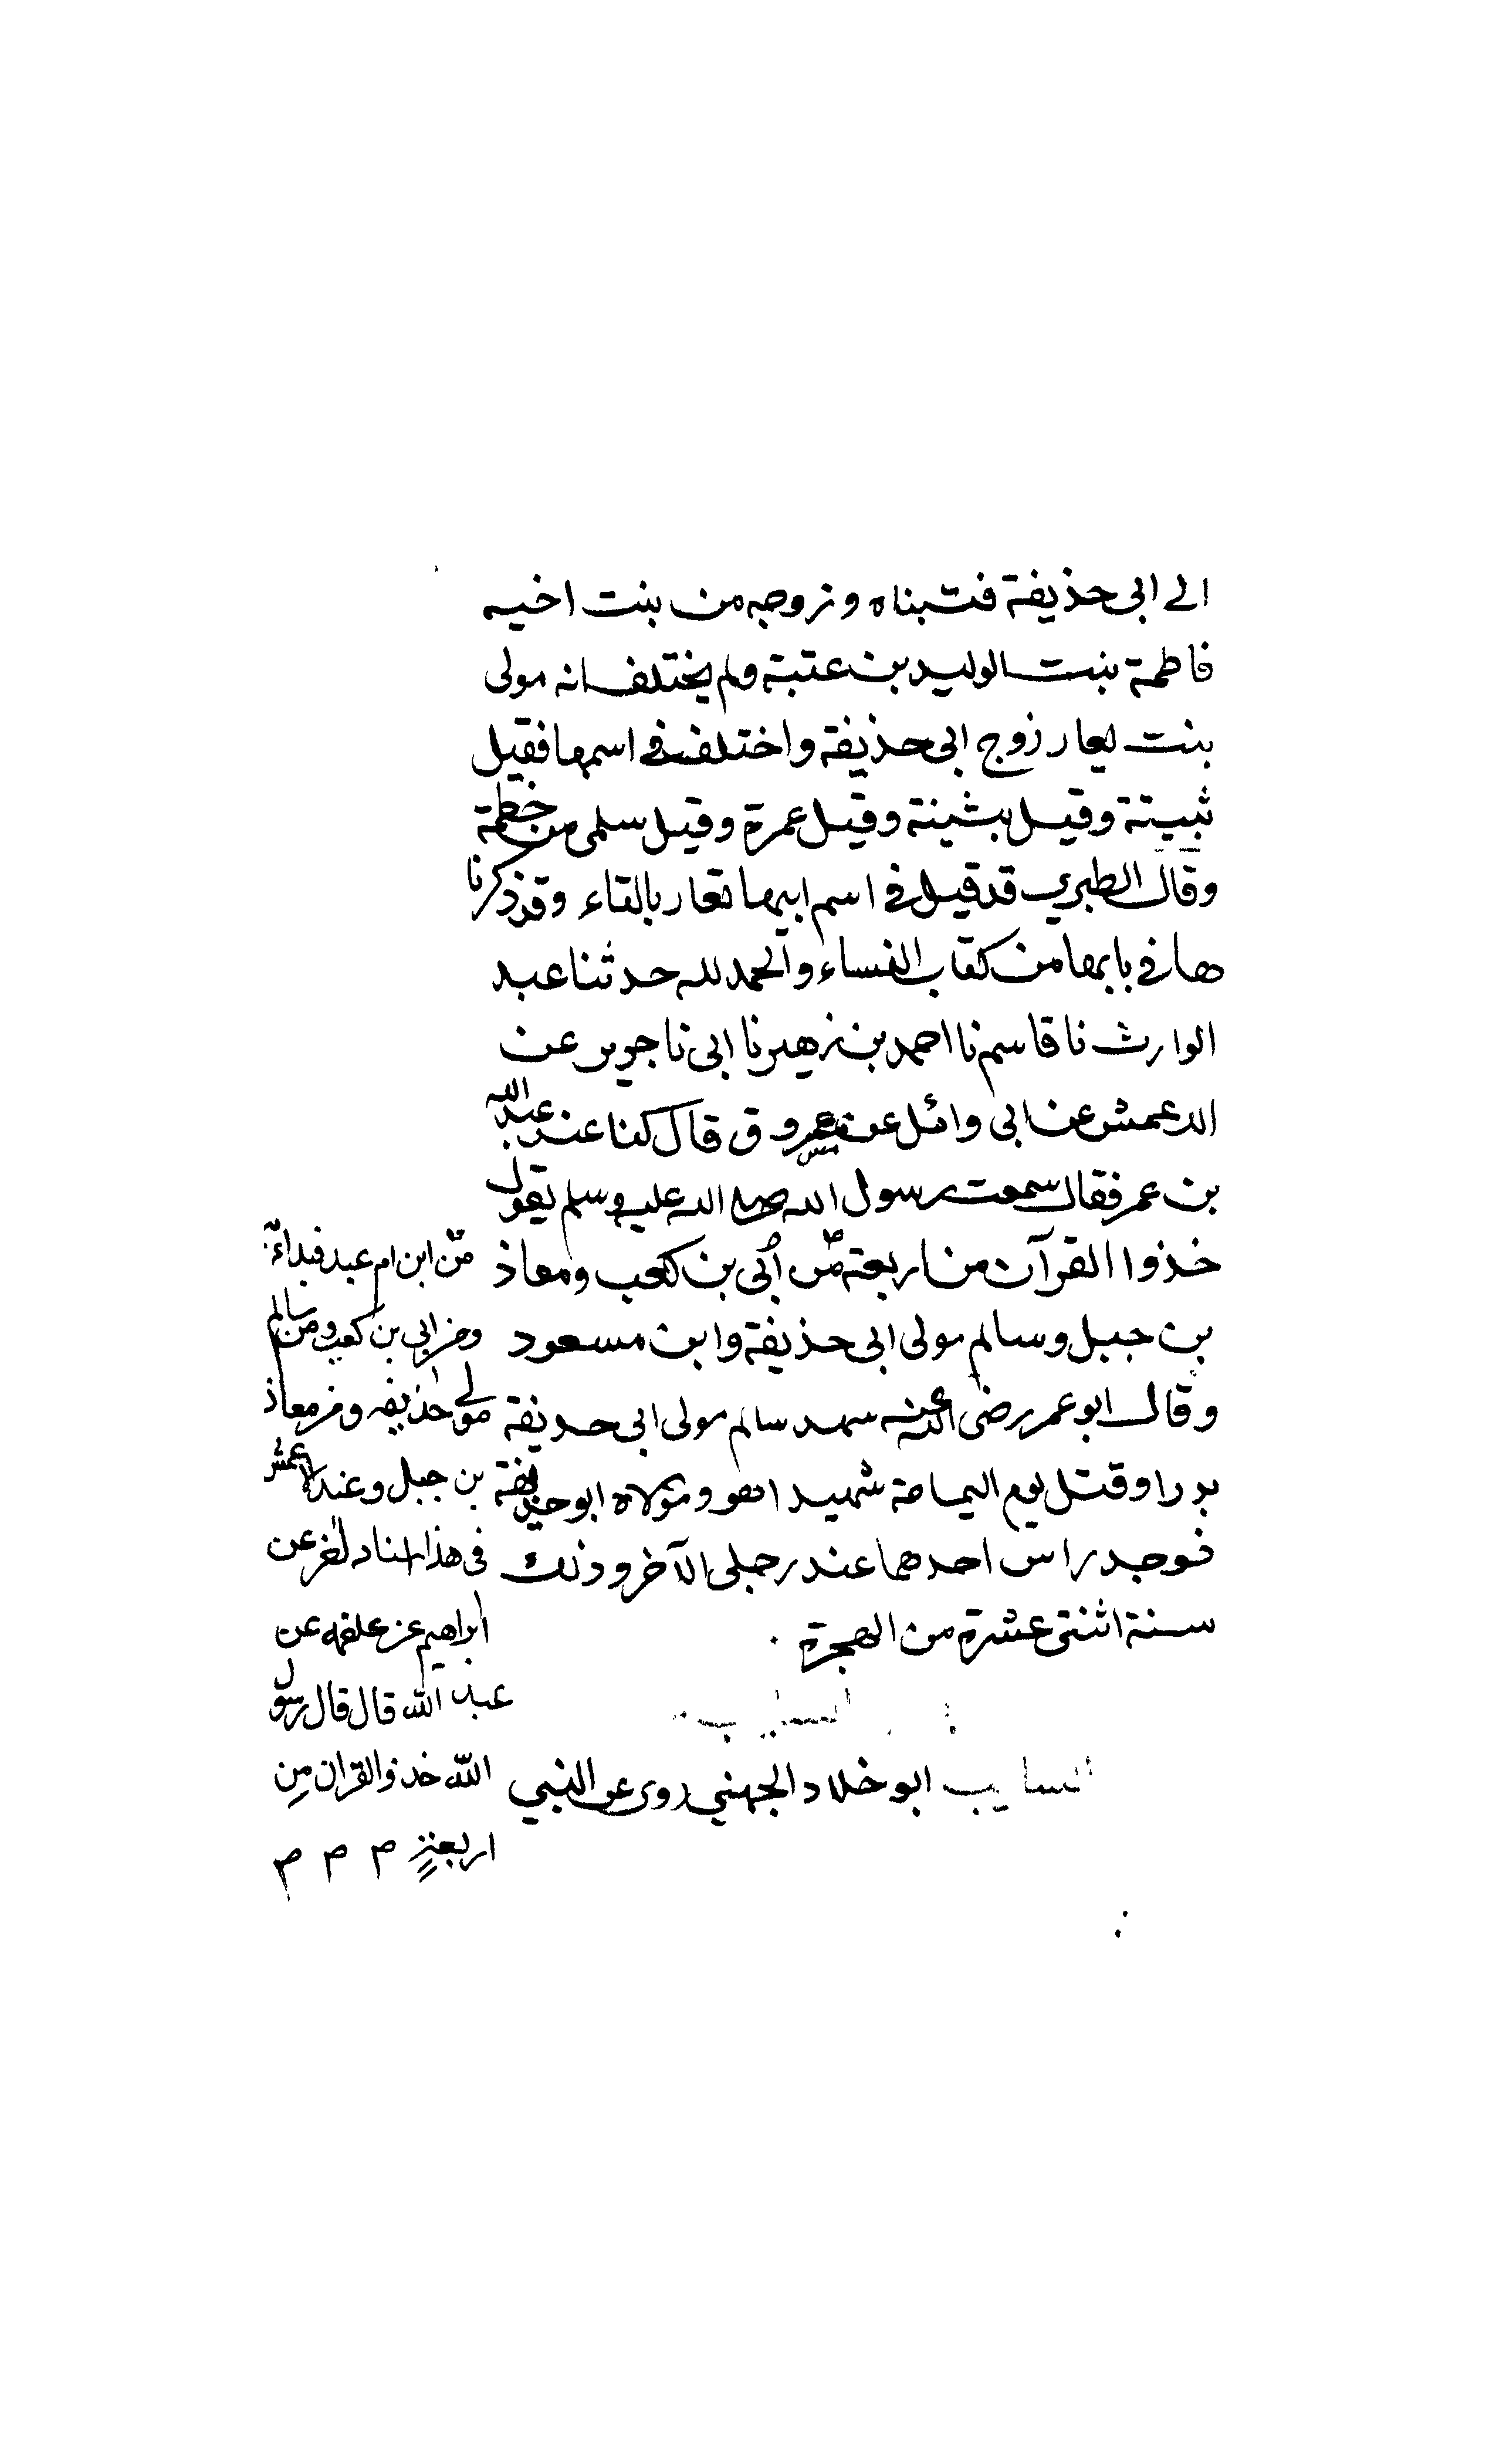 الى ابى حذيفة فتبناه وزوجه من بنت اخيه
فاطمة بنت الوليد بن عتبة ولم يختلف انه مولى
بنت يعار زوج ابى حذيفة واختلف فى اسمها فقيل
ثبيتة وقيل بثينة وقيل عمرة وقيل سلمى من خطمة
وقال الطبري قد قيل فى اسم ابيها تعار بالتاء وقد ذكرنا
ها فى بابها من كتاب النساء والحمد لله حدثنا عبد
الوارث نا قاسم نا احمد بن زهير نا ابى نا جرير عن
الاعمش عن ابى وائل عن مسروق قال كنا عند عبد الله
بن عمر فقال سمعت رسول الله صلى الله عليه وسلم يقول
خذوا القرآن من اربعة من أبى بن كعب ومعاذ
بن جبل وسالم مولى ابى حذيفة وابن مسعود
وقال ابو عمر رضى الله عنه شهد سالم مولى ابى حذيفة
بدرا وقتل يوم اليمامة شهيدا هو ومولاه ابو حذيفة
فوجد راس احدهما عند رجلى الآخر وذلك
سنة اثنتى عشرة من الهجرة
السايب ابو خلاد الجهني روى عن النبي
من ابن ام عبد فبدا به
ومن ابي بن كعب ومن سالم
مولى حذيفه ومن معاذ
بن جبل وعند الاعمش
فى هذا اسناد اخر عن
ابراهيم عن علقمه عن
عبد الله قال قال رسول
الله خذوا القران من
اربعة م م م